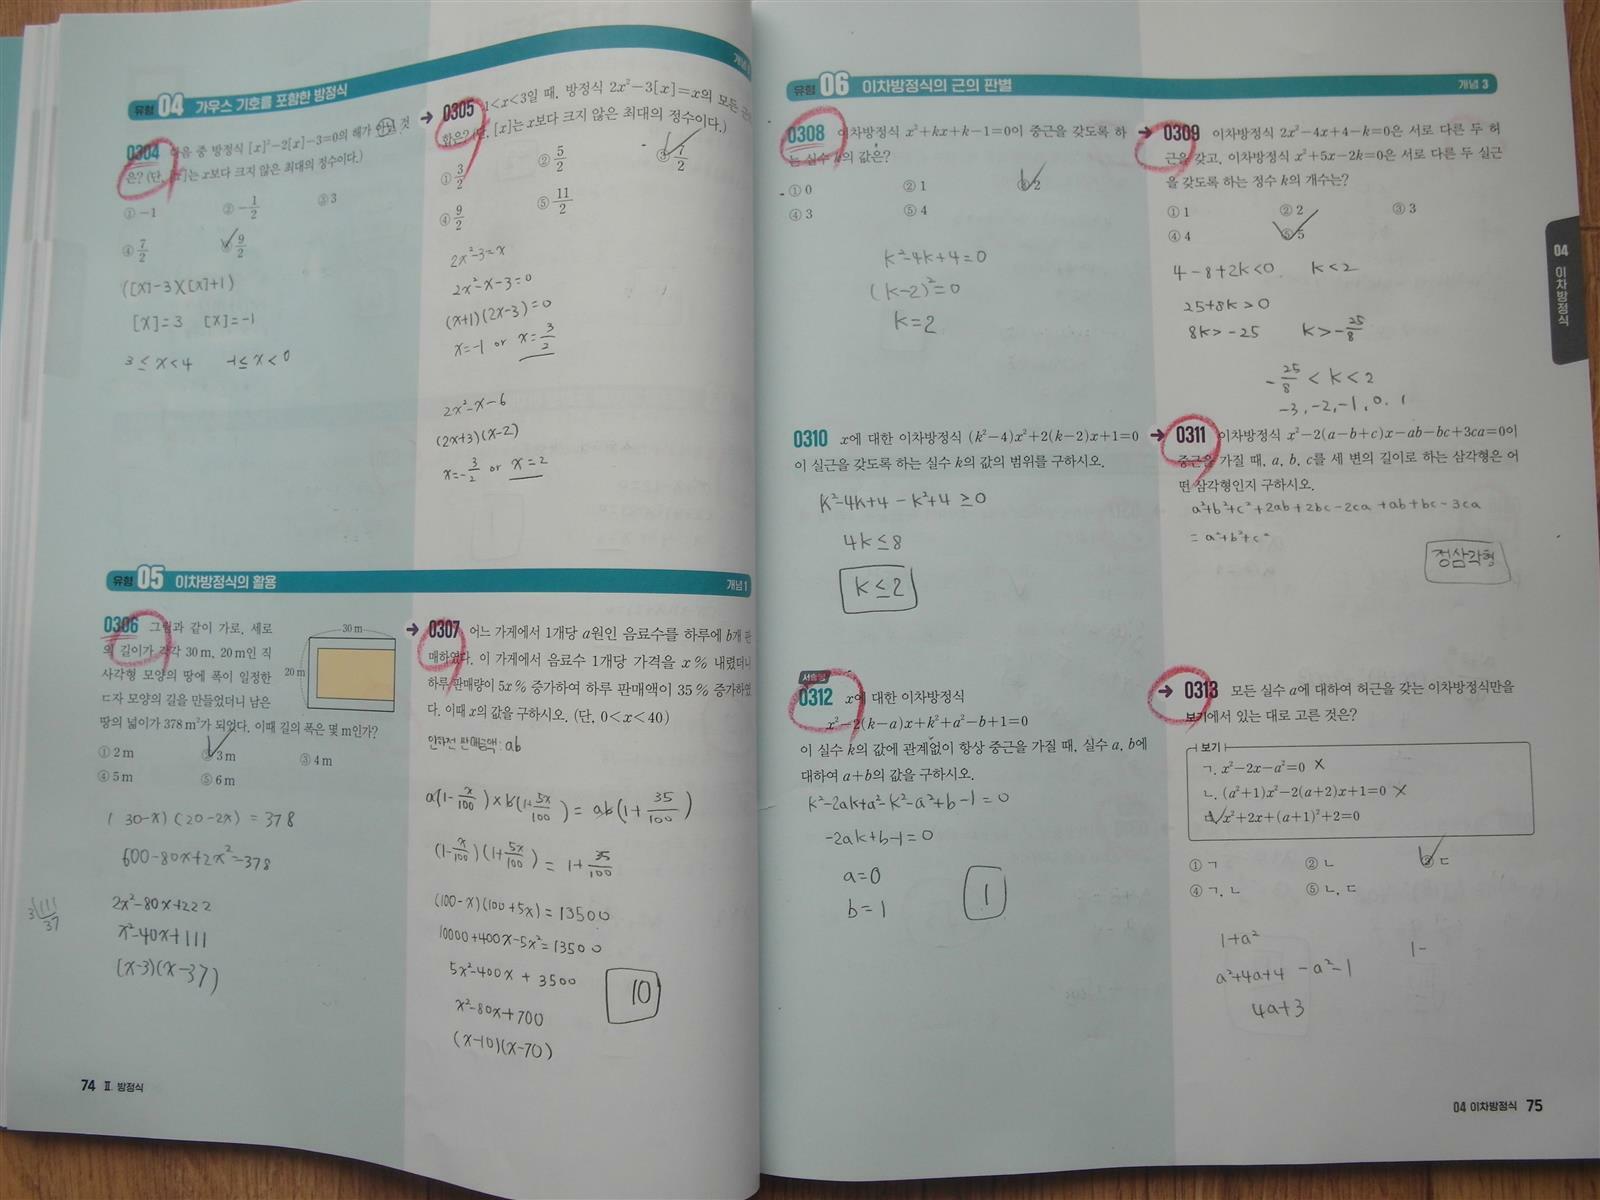 유형 04 가우스 기호를 포함한 방정식
개념
0304 다음 중 방정식 [x]²-2[x]-3=0의 해가 아닌 것
은? (단, [x]는 x보다 크지 않은 최대의 정수이다.)
① -1 ② -1/2 ③ 3
④ 7/2 ⑤ 9/2
([x]-3)([x]+1)
[x]=3 [x]=-1
3≤x<4 -1≤x<0
→ 0305 1<x<3일 때, 방정식 2x²-3[x]=x의 모든
합은? (단, [x]는 x보다 크지 않은 최대의 정수이다.)
① 3/2 ② 5/2 ③ 7/2
④ 9/2 ⑤ 11/2
2x²-3=x
2x²-x-3=0
(x+1)(2x-3)=0
x=-1 or x=3/2
2x²-x-6
(2x+3)(x-2)
x=-3/2 or x=2
유형 05 이차방정식의 활용
개념 1
0306 그림과 같이 가로, 세로
의 길이가 각각 30 m, 20 m인 직
사각형 모양의 땅에 폭이 일정한
ㄷ자 모양의 길을 만들었더니 남은
땅의 넓이가 378 m²가 되었다. 이때 길의 폭은 몇 m인가?
30 m
20 m
① 2 m ② 3 m ③ 4 m
④ 5 m ⑤ 6 m
(30-x)(20-2x)=378
600-80x+2x²=378
2x²-80x+222
x²-40x+111
(x-3)(x-37)
3 111
37
→ 0307 어느 가게에서 1개당 a원인 음료수를 하루에 b개 판
매하였다. 이 가게에서 음료수 1개당 가격을 x % 내렸더니
하루 판매량이 5x % 증가하여 하루 판매액이 35 % 증가하였
다. 이때 x의 값을 구하시오. (단, 0<x<40)
인하전 판매금액: ab
a(1-x/100)×b(1+5x/100)=ab(1+35/100)
(1-x/100)(1+5x/100)=1+35/100
(100-x)(100+5x)=13500
10000+400x-5x²=13500
5x²-400x+3500
x²-80x+700
(x-10)(x-70)
10
74 Ⅱ. 방정식
유형 06 이차방정식의 근의 판별
개념 3
0308 이차방정식 x²+kx+k-1=0이 중근을 갖도록 하
는 실수 k의 값은?
① 0 ② 1 ③ 2
④ 3 ⑤ 4
k²-4k+4=0
(k-2)²=0
k=2
→ 0309 이차방정식 2x²-4x+4-k=0은 서로 다른 두 허
근을 갖고, 이차방정식 x²+5x-2k=0은 서로 다른 두 실근
을 갖도록 하는 정수 k의 개수는?
① 1 ② 2 ③ 3
④ 4 ⑤ 5
4-8+2k<0. k<2
25+8k>0
8k>-25 k>-25/8
-25/8<k<2
-3, -2, -1, 0, 1
0310 x에 대한 이차방정식 (k²-4)x²+2(k-2)x+1=0
이 실근을 갖도록 하는 실수 k의 값의 범위를 구하시오.
k²-4k+4-k²+4≥0
4k≤8
k≤2
→ 0311 이차방정식 x²-2(a-b+c)x-ab-bc+3ca=0이
중근을 가질 때, a, b, c를 세 변의 길이로 하는 삼각형은 어
떤 삼각형인지 구하시오.
a²+b²+c²+2ab+2bc-2ca+ab+bc-3ca
=a²+b²+c²
정삼각형
서술형
0312 x에 대한 이차방정식
x²-2(k-a)x+k²+a²-b+1=0
이 실수 k의 값에 관계없이 항상 중근을 가질 때, 실수 a, b에
대하여 a+b의 값을 구하시오.
k²-2ak+a²-k²-a²+b-1=0
-2ak+b-1=0
a=0
b=1
1
→ 0313 모든 실수 a에 대하여 허근을 갖는 이차방정식만을
보기에서 있는 대로 고른 것은?
보기
ㄱ. x²-2x-a²=0 ×
ㄴ. (a²+1)x²-2(a+2)x+1=0 ×
ㄷ. x²+2x+(a+1)²+2=0
① ㄱ ② ㄴ ③ ㄷ
④ ㄱ, ㄴ ⑤ ㄴ, ㄷ
1+a²
a²+4a+4-a²-1
4a+3
1-
04 이차방정식
04 이차방정식 75